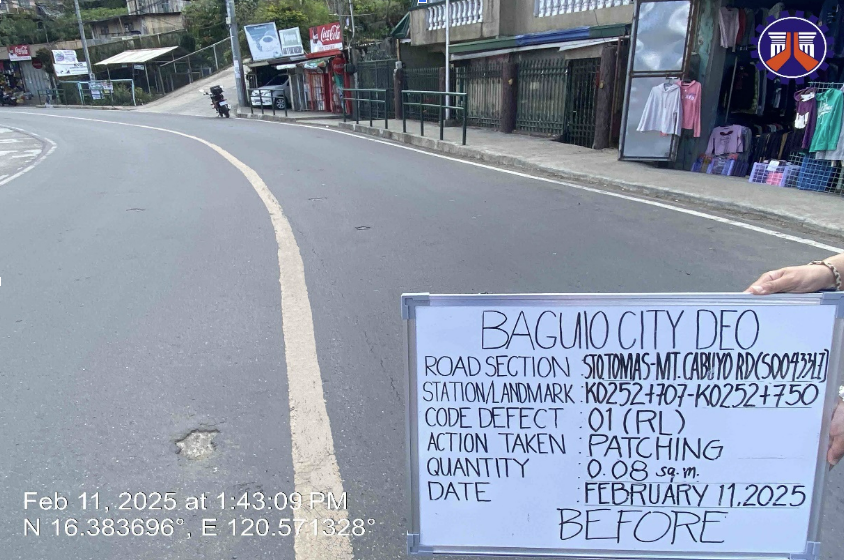 Coca-Cola
BAGUIO CITY DEO
ROAD SECTION : STO.TOMAS-MT. CABUYO RD(S00433LZ)
STATION/LANDMARK : K0252+707-K0252+750
CODE DEFECT : 01 (RL)
ACTION TAKEN : PATCHING
QUANTITY : 0.08 sq.m.
DATE : FEBRUARY 11,2025
BEFORE
Feb 11, 2025 at 1:43:09 PM
N 16.383696°, E 120.571328°